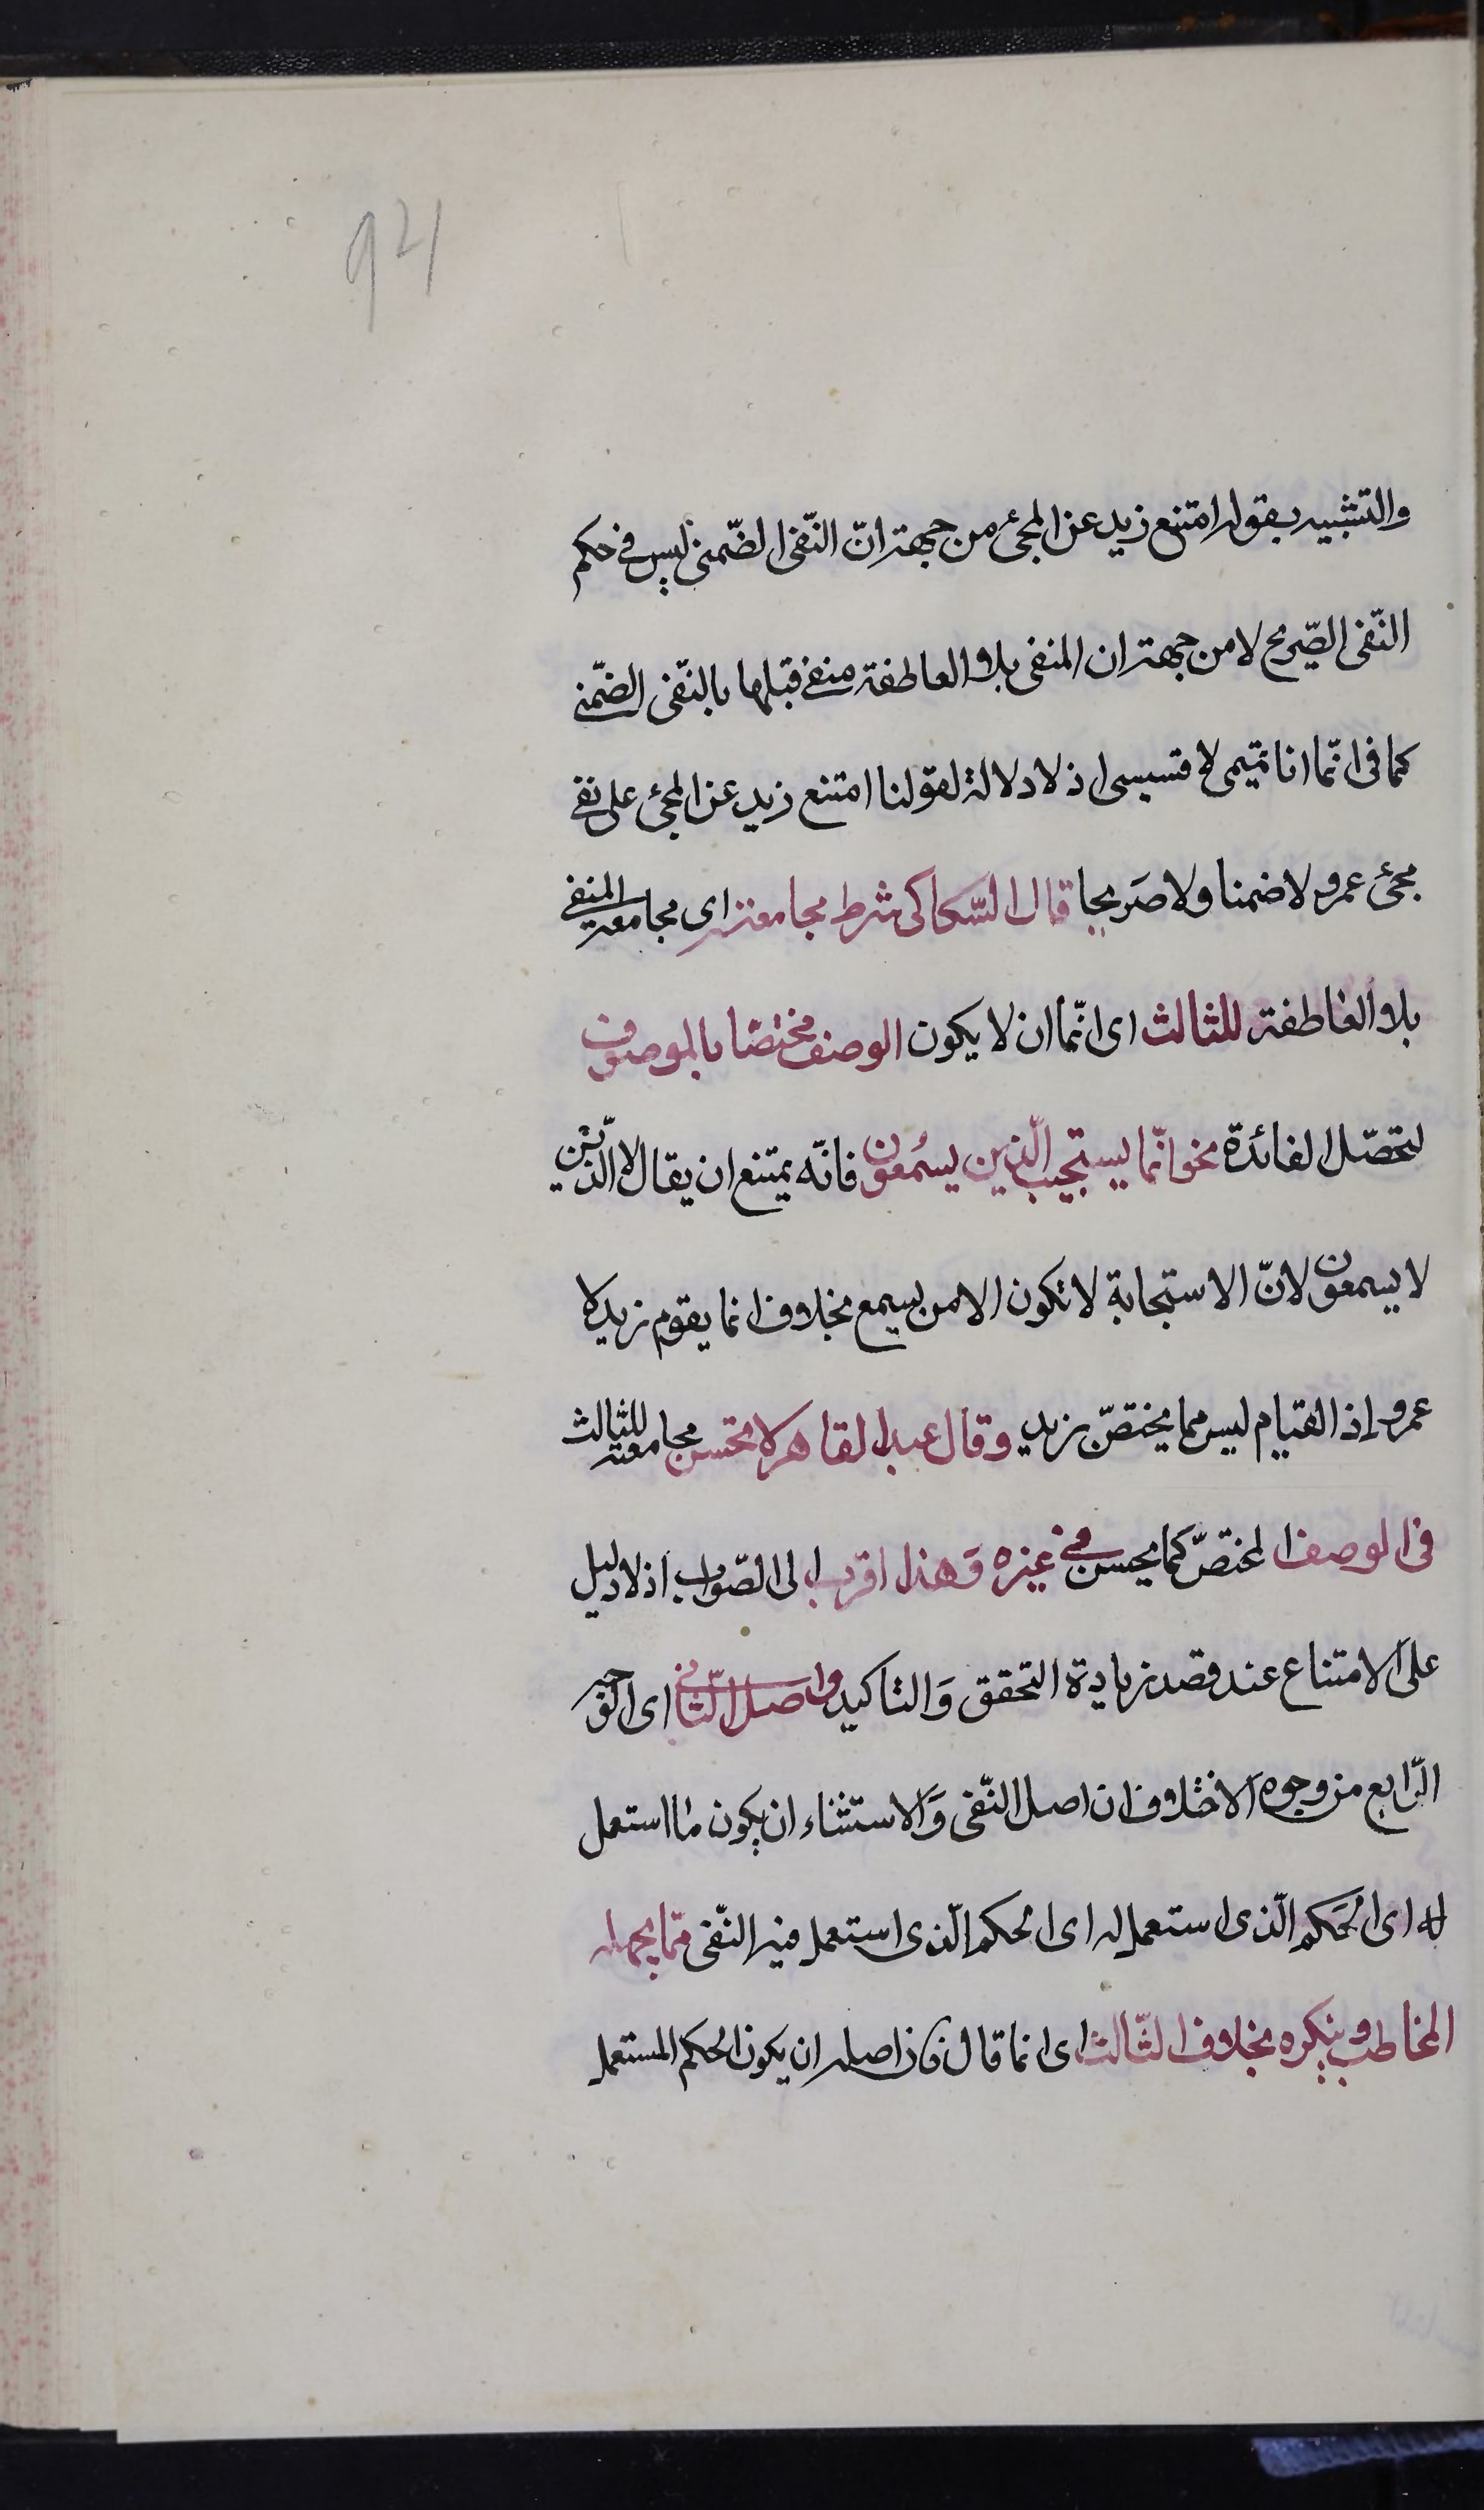 921
والتشبيه بقوله امتنع زيد عن المجئ من جهة انّ النّفى الضّمنى ليس في حكم
النّفى الصّريح لا من جهة ان المنفى بلا العاطفة منفى قبلها بالنّفى الضّمنى
كما فى انّما انا تميمى لا قيسى اذ لا دلالة لقولنا امتنع زيد عن المجئ على نفى
مجئ عمرو لا ضمنا ولا صَريحا قال السّكاكى شرط مجامعته اى مجامعة المنفى
بلا العاطفة للثالث اى انّما ان لا يكون الوصف مختصّا بالموصوف
لتحصّل الفائدة نحو انّما يستجيب الّذين يسمعون فانّه يمتنع ان يقال لا الّذين
لا يسمعون لانّ الاستجابة لا تكون الا من يسمع بخلاف انما يقوم زيد لا
عمرو إذ القيام ليس مما يختصّ بزيد وقال عبد القاهر لا تحسن مجامعته للثالث
فى الوصف المختصّ كما يحسن فى غيره وَهذا اقرب الى الصّواب اذ لا دليل
على الامتناع عند قصد زيادة التحقق وَالتاكيد واصل الثّانى اى الوجه
الرّابع من وجوه الاختلاف ان اصل النّفى وَالاستثناء ان يكون ما استعمل
له اى الحَكم الّذى استعمل له اى الحكم الّذى استعمل فيه النّفى ممّا يجهله
المخاطب وينكره بخلاف الثّالث اى انما قال فان اصله ان يكون الحكم المستعمل